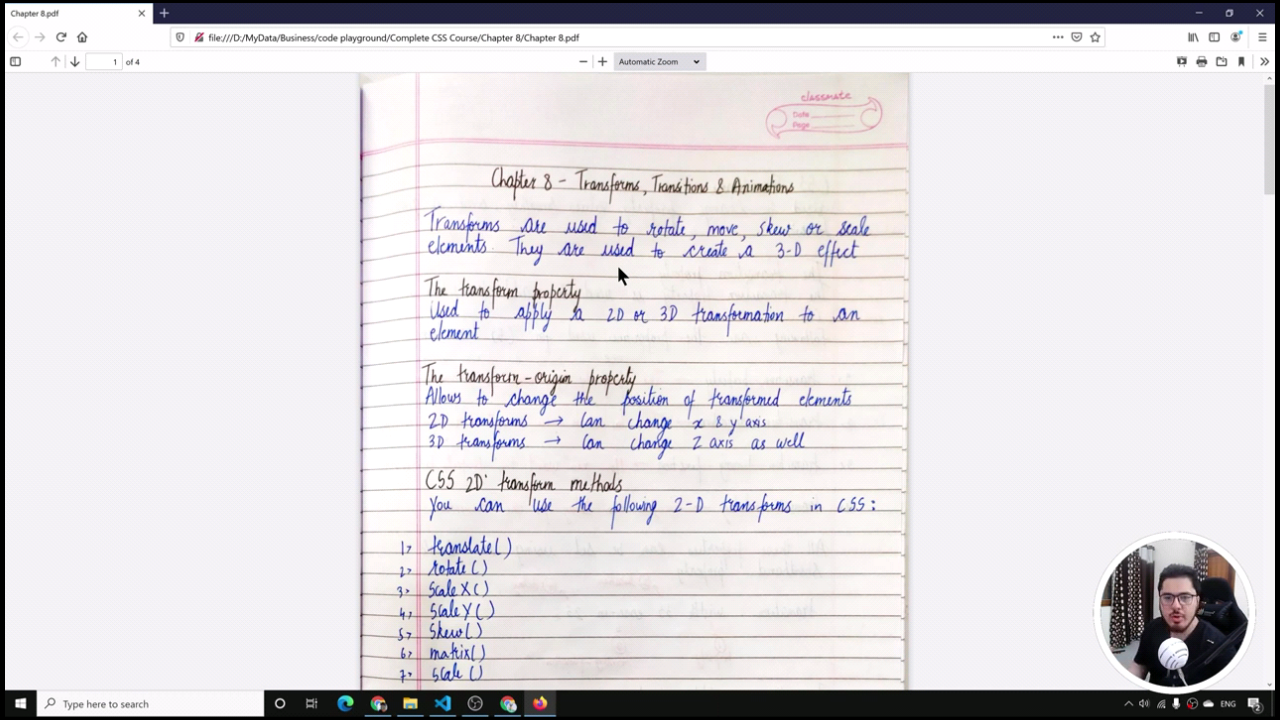 Chapter 8.pdf
file:///D:/MyData/Business/code playground/Complete CSS Course/Chapter 8/Chapter 8.pdf
1 of 4
Automatic Zoom
classmate
Date
Page
Chapter 8 - Transforms, Transitions & Animations
Transforms are used to rotate, move, skew or scale
elements. They are used to create a 3-D effect
The transform property
Used to apply a 2D or 3D transformation to an
element
The transform-origin property
Allows to change the position of transformed elements
2D transforms → Can change x & y axis
3D transforms → Can change Z axis as well
CSS 2D transform methods
You can use the following 2-D transforms in CSS:
1> translate()
2> rotate()
3> scaleX()
4> scaleY()
5> skew()
6> matrix()
7> scale()
Type here to search
ENG
2